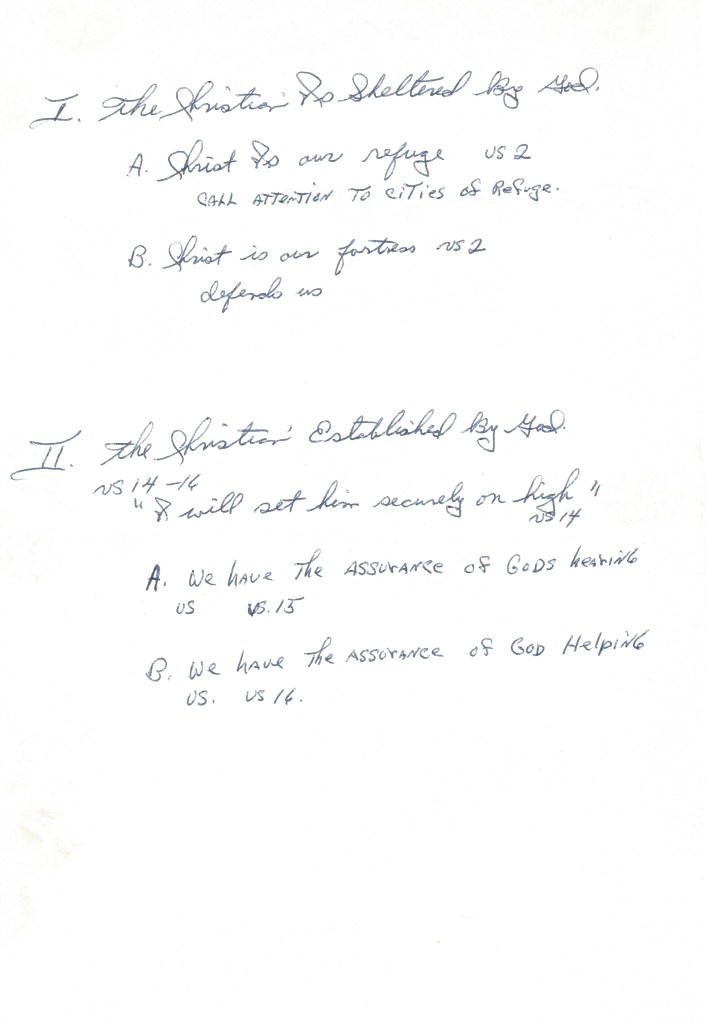 I. The Christian Is Sheltered By God.
A. Christ Is our refuge vs 2
CALL ATTENTION TO CITIES OF Refuge.
B. Christ is our fortress vs 2
defends us
II. The Christian Established By God.
vs 14-16
"I will set him securely on high"
vs 14
A. We have The ASSURANCE of GODS hearing
US vs. 15
B. We have The ASSURANCE of GOD Helping
US. vs 16.